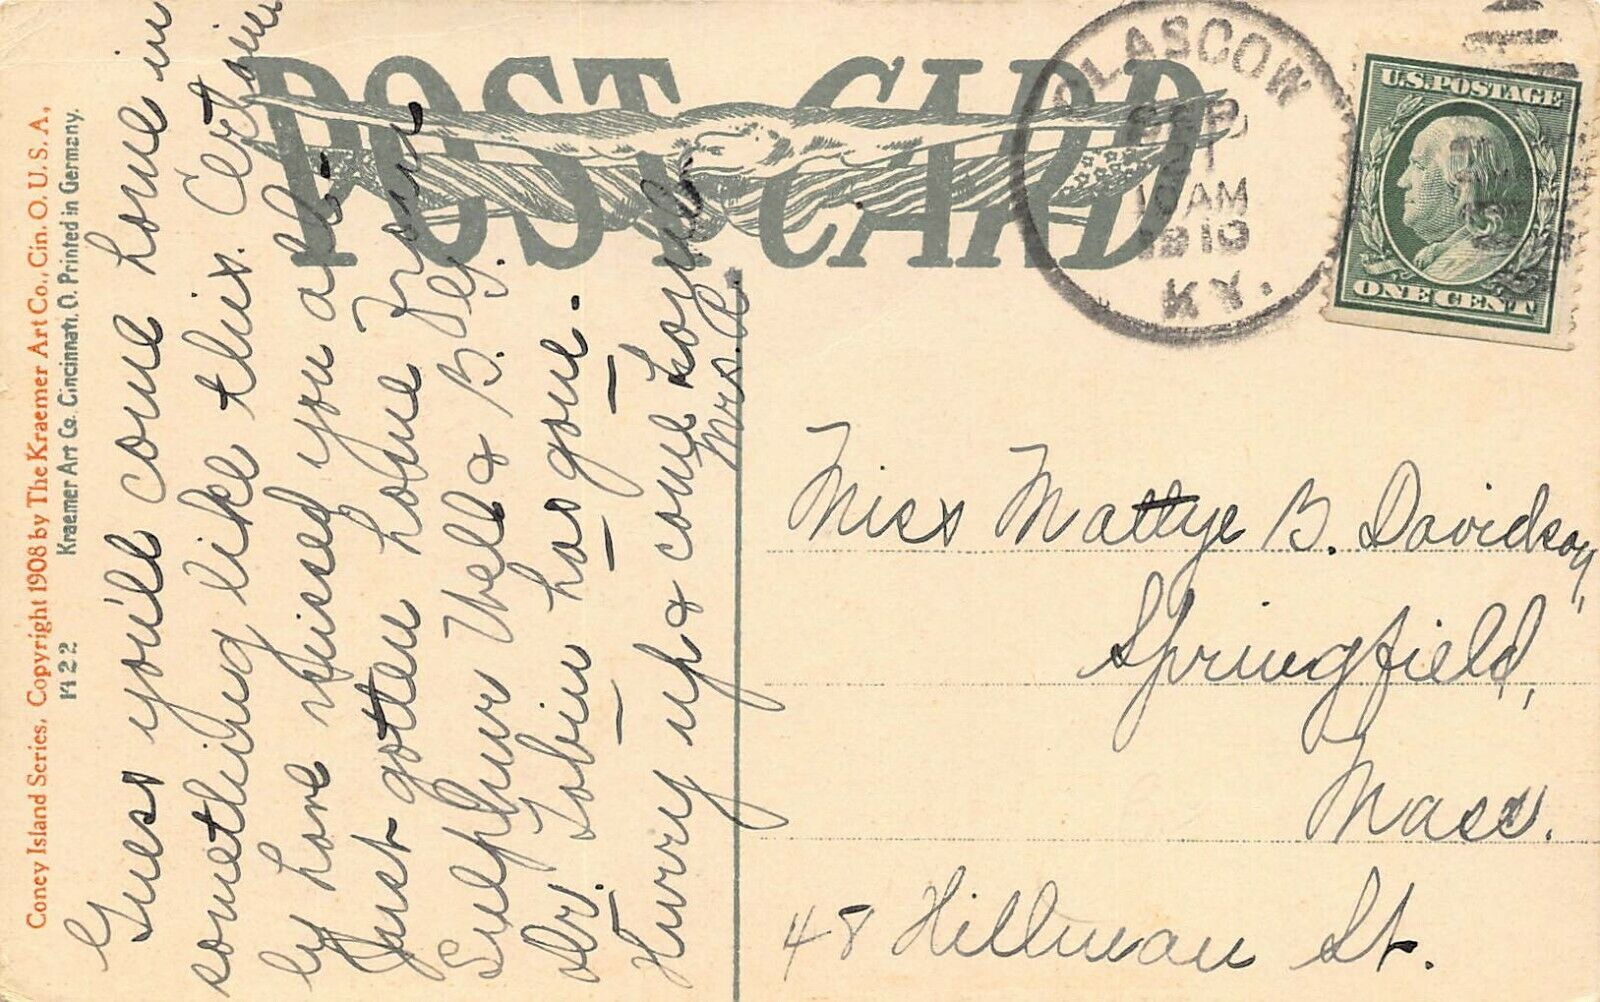 POST CARD
GLASCOW
SEP
1
10 AM
1910
KY.
U.S. POSTAGE
ONE CENT
Coney Island Series, Copyright 1908 by The Kraemer Art Co., Cin. O. U. S. A.,
Kraemer Art Co. Cincinnati, O. Printed in Germany.
M 22
Guess you'll come home in
something like this. Certain
ly have missed you all.
Just gotten home from
Sulphur Well & B. Ley.
Dr. Tobin has gone.
Hurry up & come home
Mrs. R.
Miss Mattye B. Davidson,
Springfield,
Mass.
48 Hillman St.